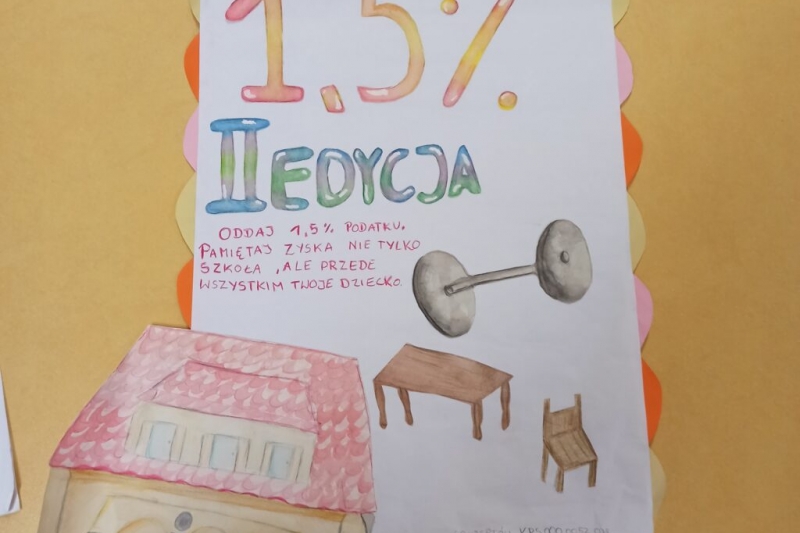 1,5%
II EDYCJA
ODDAJ 1,5% PODATKU.
PAMIĘTAJ ZYSKA NIE TYLKO
SZKOŁA ,ALE PRZEDE
WSZYSTKIM TWOJE DZIECKO.